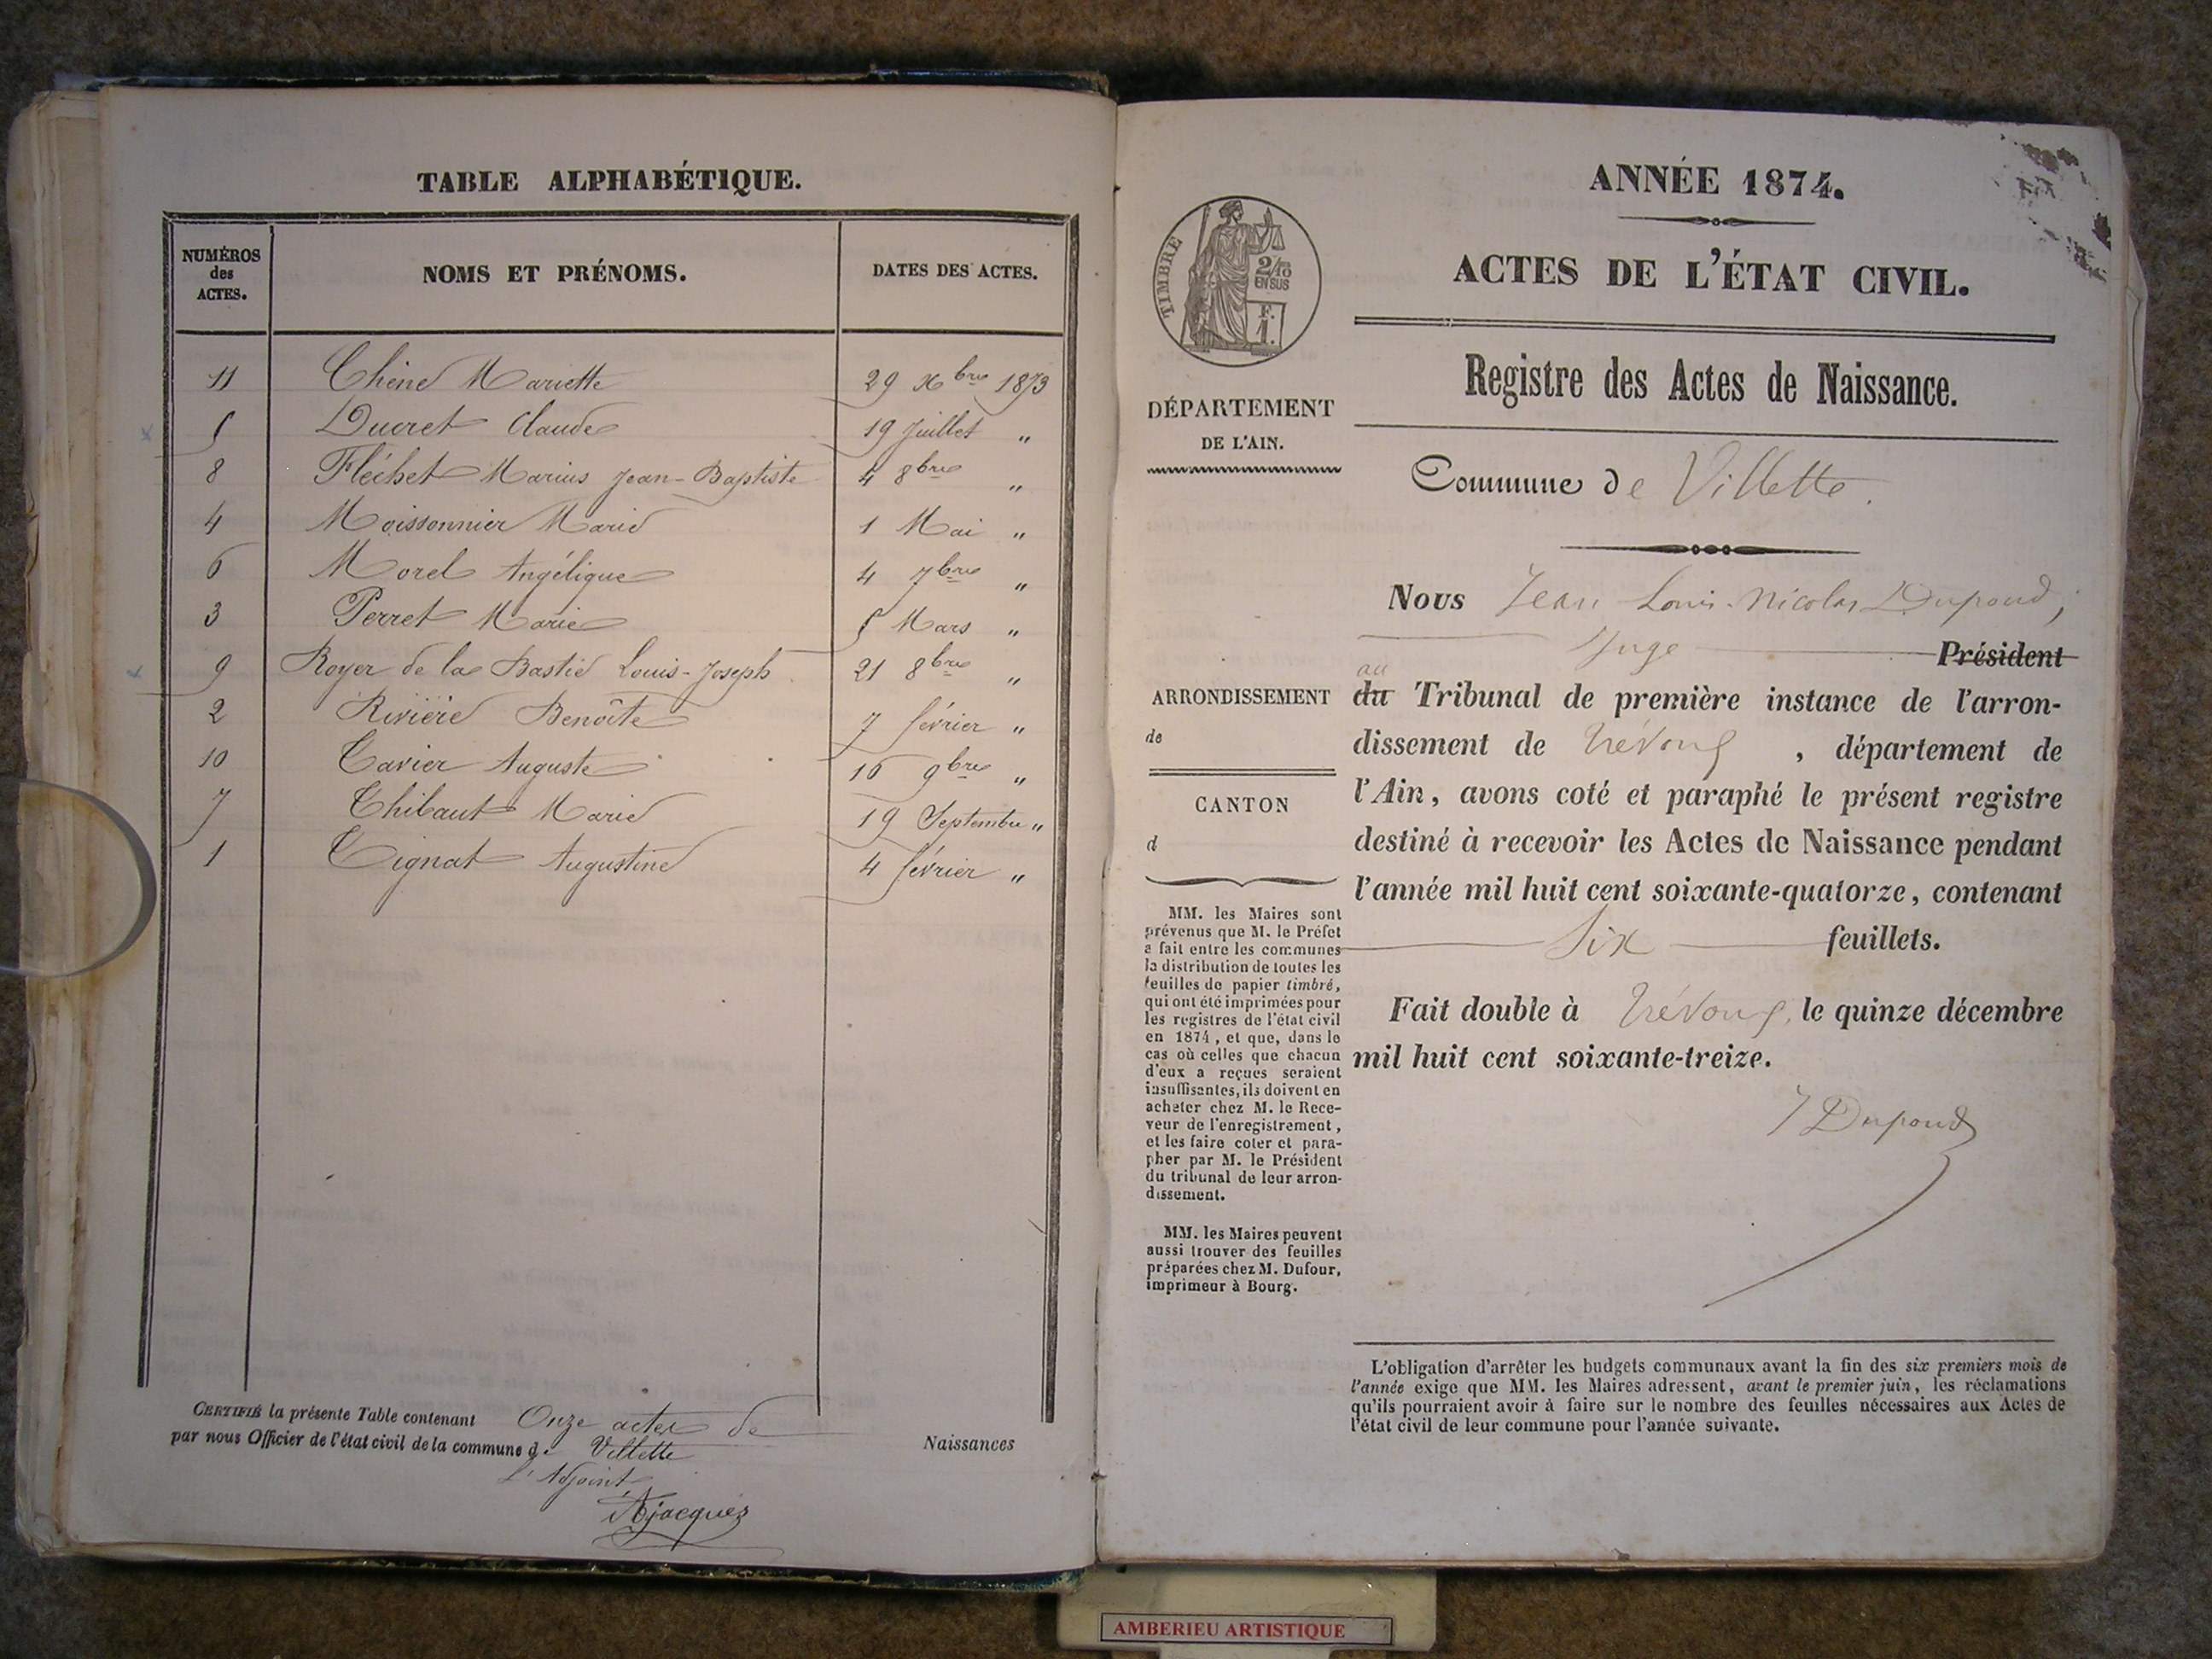 TABLE ALPHABÉTIQUE.
NUMÉROS des ACTES.
NOMS ET PRÉNOMS.
DATES DES ACTES.
11 Chêne Mariette 29 Xbre 1873
5 Ducret Claude 19 Juillet "
8 Fléchet Marius Jean-Baptiste 4 8bre "
4 Moissonnier Marie 1 Mai "
6 Morel Angélique 4 7bre "
3 Perret Marie 5 Mars "
9 Royer de la Bastie Louis-Joseph 21 8bre "
2 Rivière Benoîte 7 février "
10 Tavier Auguste 16 9bre "
7 Thibaut Marie 19 Septembre "
1 Tignat Augustine 4 février "
CERTIFIÉ la présente Table contenant Onze actes de Naissances
par nous Officier de l'état civil de la commune de Villette
L'Adjoint,
ANNÉE 1874.
ACTES DE L'ÉTAT CIVIL.
TIMBRE
2/10 EN SUS
F. 1.
Registre des Actes de Naissance.
DÉPARTEMENT
DE L'AIN.
Commune de Villette.
Nous Jean-Louis-Nicolas Dupond,
Juge Président
au du Tribunal de première instance de l'arron-
dissement de Trévoux, département de
l'Ain, avons coté et paraphé le présent registre
destiné à recevoir les Actes de Naissance pendant
l'année mil huit cent soixante-quatorze, contenant
Six feuillets.
Fait double à Trévoux, le quinze décembre
mil huit cent soixante-treize.
J Dupond
ARRONDISSEMENT
de
CANTON
d
MM. les Maires sont
prévenus que M. le Préfet
a fait entre les communes
la distribution de toutes les
feuilles de papier timbré,
qui ont été imprimées pour
les registres de l'état civil
en 1874, et que, dans le
cas où celles que chacun
d'eux a reçues seraient
insuffisantes, ils doivent en
acheter chez M. le Rece-
veur de l'enregistrement,
et les faire coter et para-
pher par M. le Président
du tribunal de leur arron-
dissement.
MM. les Maires peuvent
aussi trouver des feuilles
préparées chez M. Dufour,
imprimeur à Bourg.
L'obligation d'arrêter les budgets communaux avant la fin des six premiers mois de
l'année exige que MM. les Maires adressent, avant le premier juin, les réclamations
qu'ils pourraient avoir à faire sur le nombre des feuilles nécessaires aux Actes de
l'état civil de leur commune pour l'année suivante.
AMBERIEU ARTISTIQUE